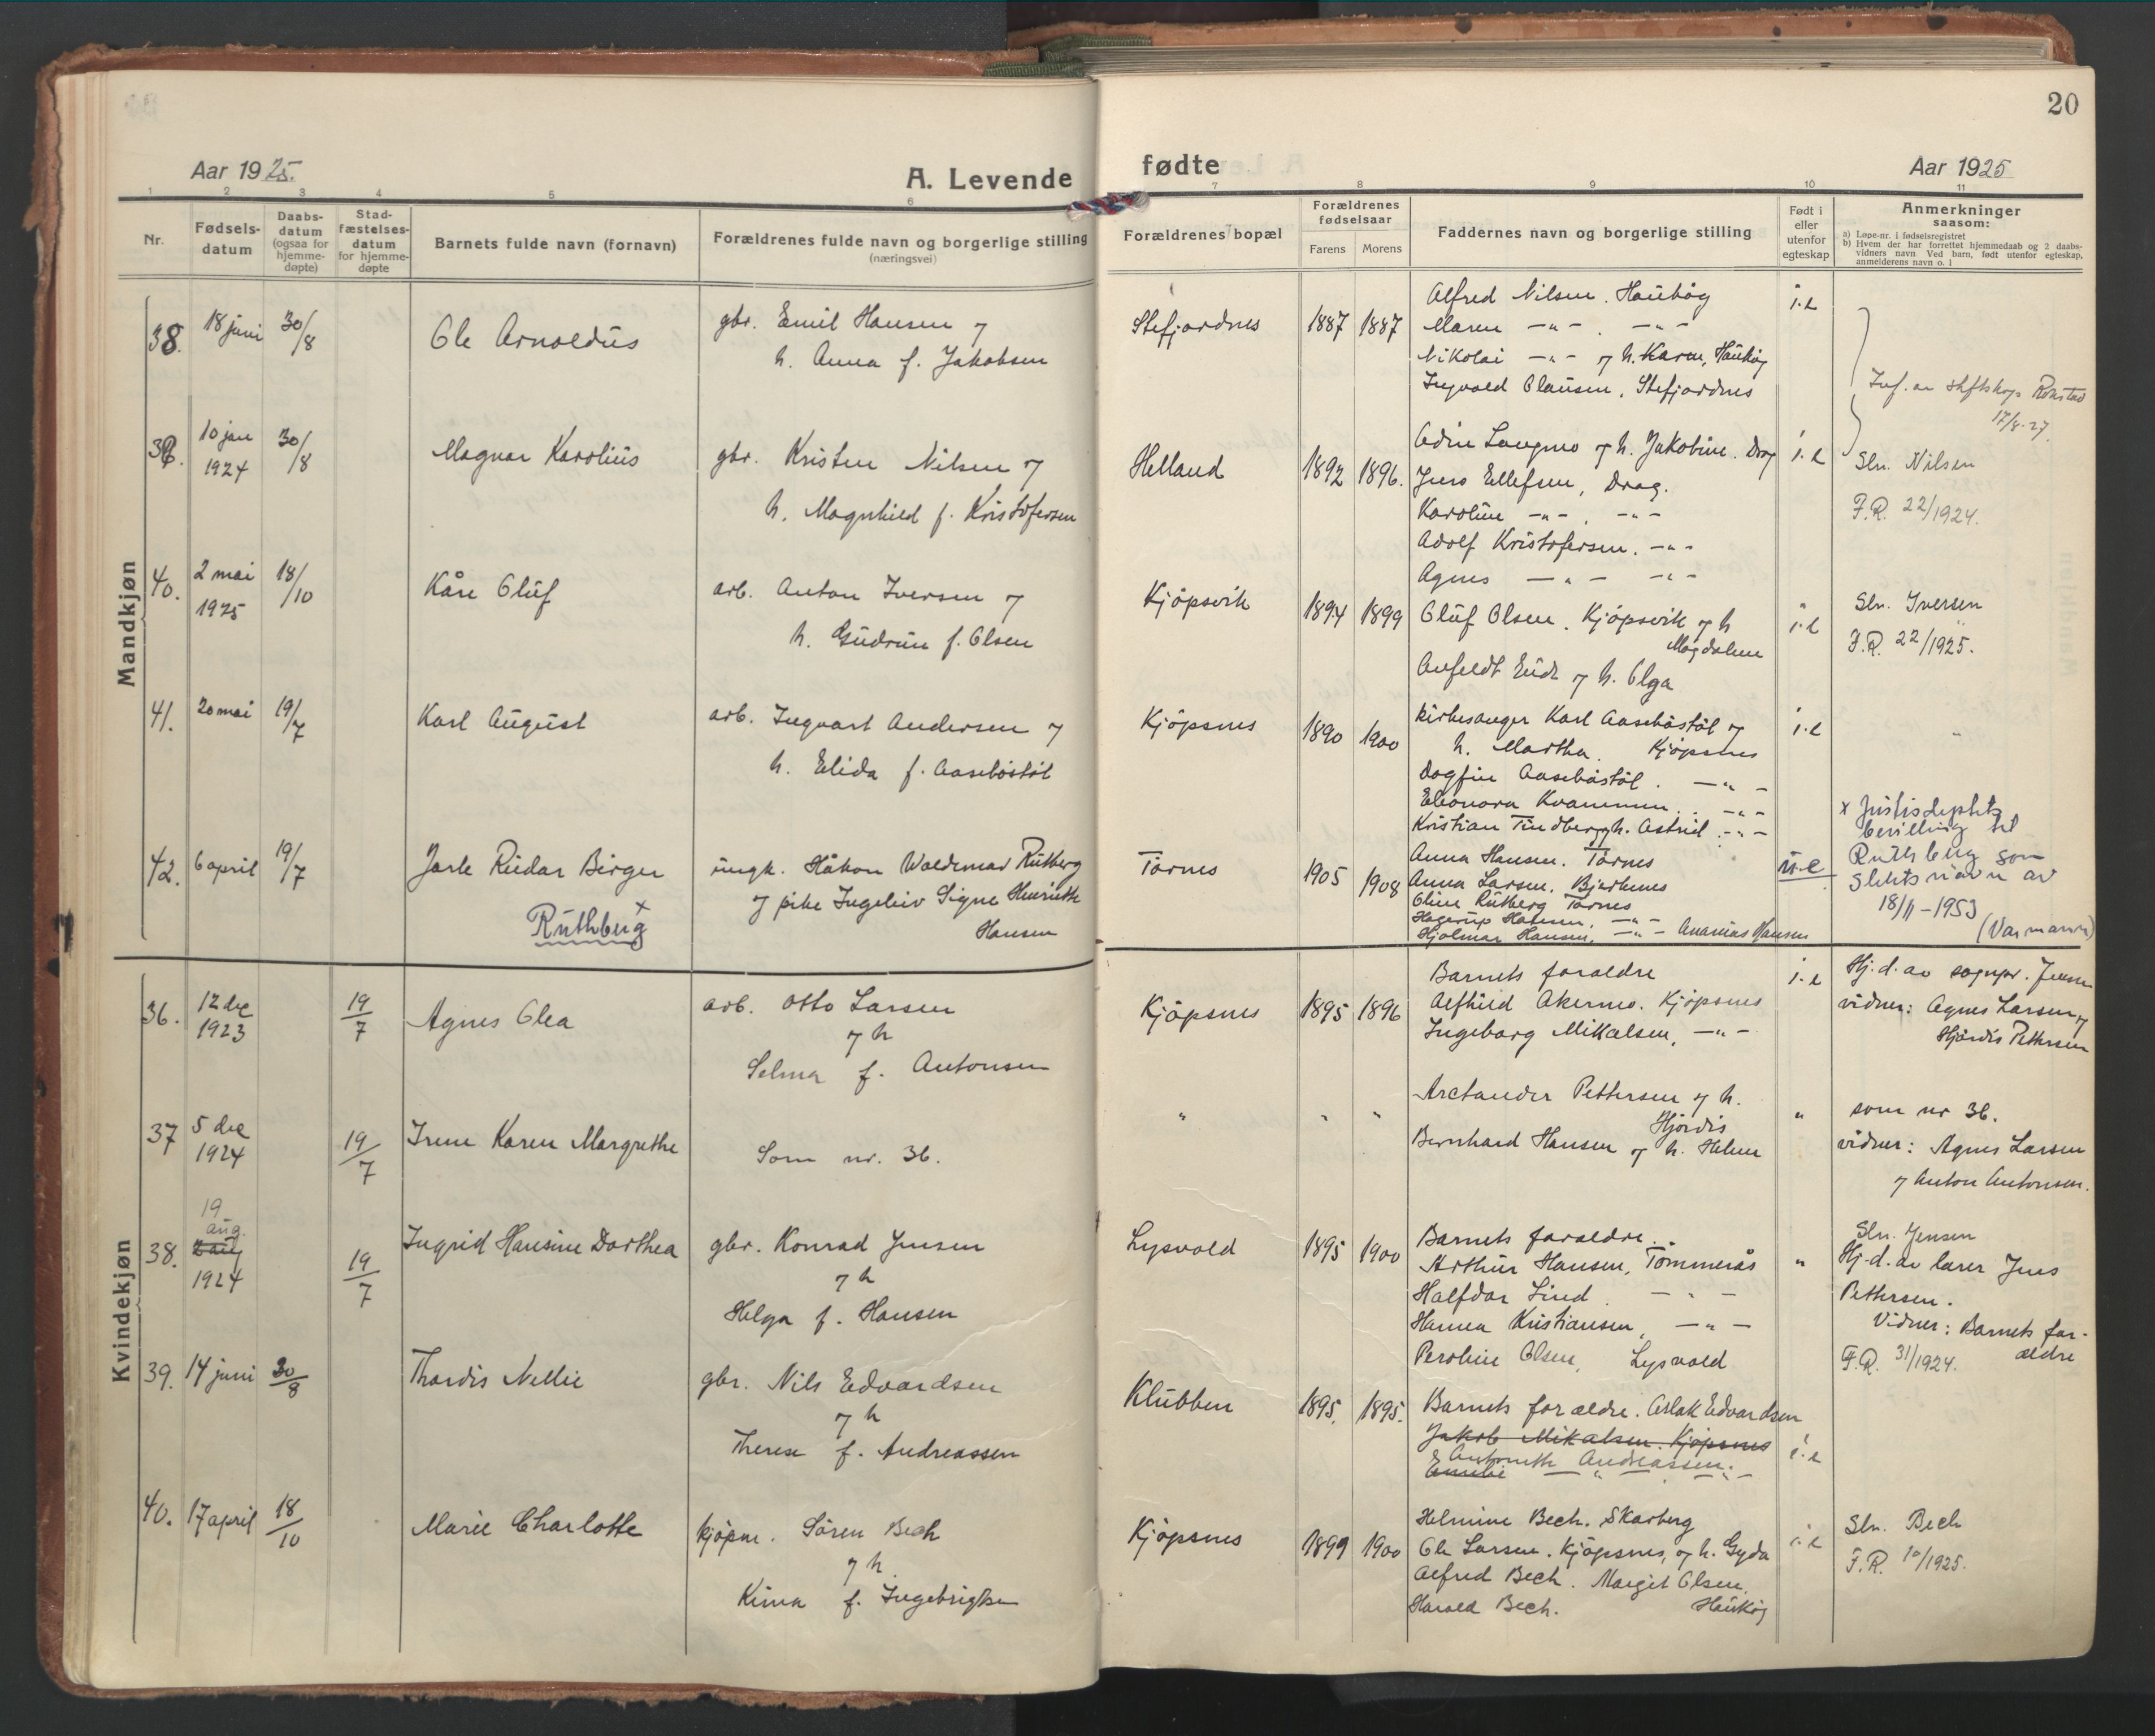 20
Aar 1925.
A. Levende
fødte
Aar 1925
1 2 3 4 5 6 7 8 9 10 11
Nr.
Fødsels-
datum
Daabs-
datum
(ogsaa for
hjemme-
døpte)
Stad-
fæstelses-
datum
for hjemme-
døpte
Barnets fulde navn (fornavn)
Forældrenes fulde navn og borgerlige stilling
(næringsvei)
Forældrenes bopæl
Forældrenes
fødselsaar
Farens Morens
Faddernes navn og borgerlige stilling
Født i
eller
utenfor
egteskap
Anmerkninger
saasom:
a) Løpe-nr. i fødselsregistret
b) Hvem der har forrettet hjemmedaab og 2 daabs-
vidners navn. Ved barn, født utenfor egteskap,
anmelderens navn o. l
Mandkjøn
38. 18 juni 30/8
Ole Arnoldus
gbr. Emil Hansen og
h. Anna f. Jakobsen
Stefjordnes 1887 1887
Alfred Nilsen. Haukøy
Maren -"- . -"-
Nikolai -"- og h. Karen, Haukøy
Ingvald Clausen, Stefjordnes
i.e
17/8-27.
39. 10 jan 30/8
1924
Magnar Karolius
gbr. Kristen Nilsen og
h. Magnhild f. Kristofersen
Helland 1892 1896.
Edin Langmo og h. Jakobine. Drag
Jens Ellefsen, Drag.
Karoline -"- . -"-
Adolf Kristofersen. -"-
Agnes -"- -"-
i.e
Sln. Nilsen
F.R. 22/1924.
40. 2 mai 18/10
1925
Kåre Oluf
arb. Anton Iversen og
h. Gudrun f. Olsen
Kjøpsvik 1894 1899
Oluf Olsen. Kjøpsvik og h
Magdalene
Anfeldt Eide og h. Olga
i.e
Sln. Iversen
F.R. 22/1925.
41. 20 mai 19/7
Karl August
arb. Ingvart Andersen og
h. Elida f. Aasebøstøl
Kjøpsnes 1890 1900
kirkesanger Karl Aasebøstøl og
h. Martha. Kjøpsnes
Dagfin Aasebøstøl. -"-
Eleonora Kvammen. -"-
Kristian Tindberg og h. Astrid. -"-
i.e
42. 6 april 19/7
Jarle Reidar Birger
Ruthberg x
ungk. Håkon Waldemar Rutberg
og pike Ingeleiv Signe Henriette
Hansen
Tårnes 1905 1908
Anna Hansen. Tårnes
Anna Larsen. Bjerknes
Oline Rutberg Tårnes
Hagerup Hansen, -"-
Hjalmar Hansen. -"- Ananias Hansen
u.e
x Justisdeptets
bevilling til
Ruthberg som
slektsnavn av
18/11-1953
(Varmann)
Kvindekjøn
36. 12 dec 19/7
1923
Agnes Olea
arb. Otto Larsen
og h
Selma f. Antonsen
Kjøpsnes 1895 1896
Barnets forældre
Alfhild Akermo. Kjøpsnes
Ingeborg Mikalsen, -"-
i.e
Hj.d. av sognpr. Jensen
vidner: Agnes Larsen og
Hjørdis Pettersen
37 5 dec 19/7
1924
Irene Karen Margrethe
Som nr. 36.
" " "
Arctander Pettersen og h.
Hjørdis
Bernhard Hansen og h. Helene
"
som nr 36.
vidner: Agnes Larsen
og Anton Antonsen.
38. 19
aug.
2 aug
1924
19/7
Ingrid Hansine Dorthea
gbr. Konrad Jensen
og h
Helga f. Hansen
Lysvold 1895 1900
Barnets forældre.
Arthur Hansen, Tømmerås
Halfdar Lind. -"-
Hanna Kristiansen, -"-
Peroline Olsen, Lysvold
"
Sln. Jensen
Hj.d. av lærer Jens
Pettersen.
Vidner: Barnets for-
ældre
F.R. 31/1924.
39. 14 juni 30/8
Thordis Nellie
gbr. Nils Edvardsen
og h
Therese f. Andreassen
Klubben 1895. 1895.
Barnets forældre. Aslak Edvardsen
Jakob Mikalsen. Kjøpsnes
Antonette Andreassen.
Emelie -"- -"-
i.e
40. 17 april 18/10
Marie Charlotte
kjøpm. Søren Bech
og h.
Kinna f. Ingebrigtsen
Kjøpsnes 1899 1900
Helmine Bech. Skarberg
Ole Larsen. Kjøpsnes, og h. Gyda
Alfred Bech. Margit Olsen,
Harald Bech. Haukøy
i.e
Sln. Bech
F.R. 10/1925.